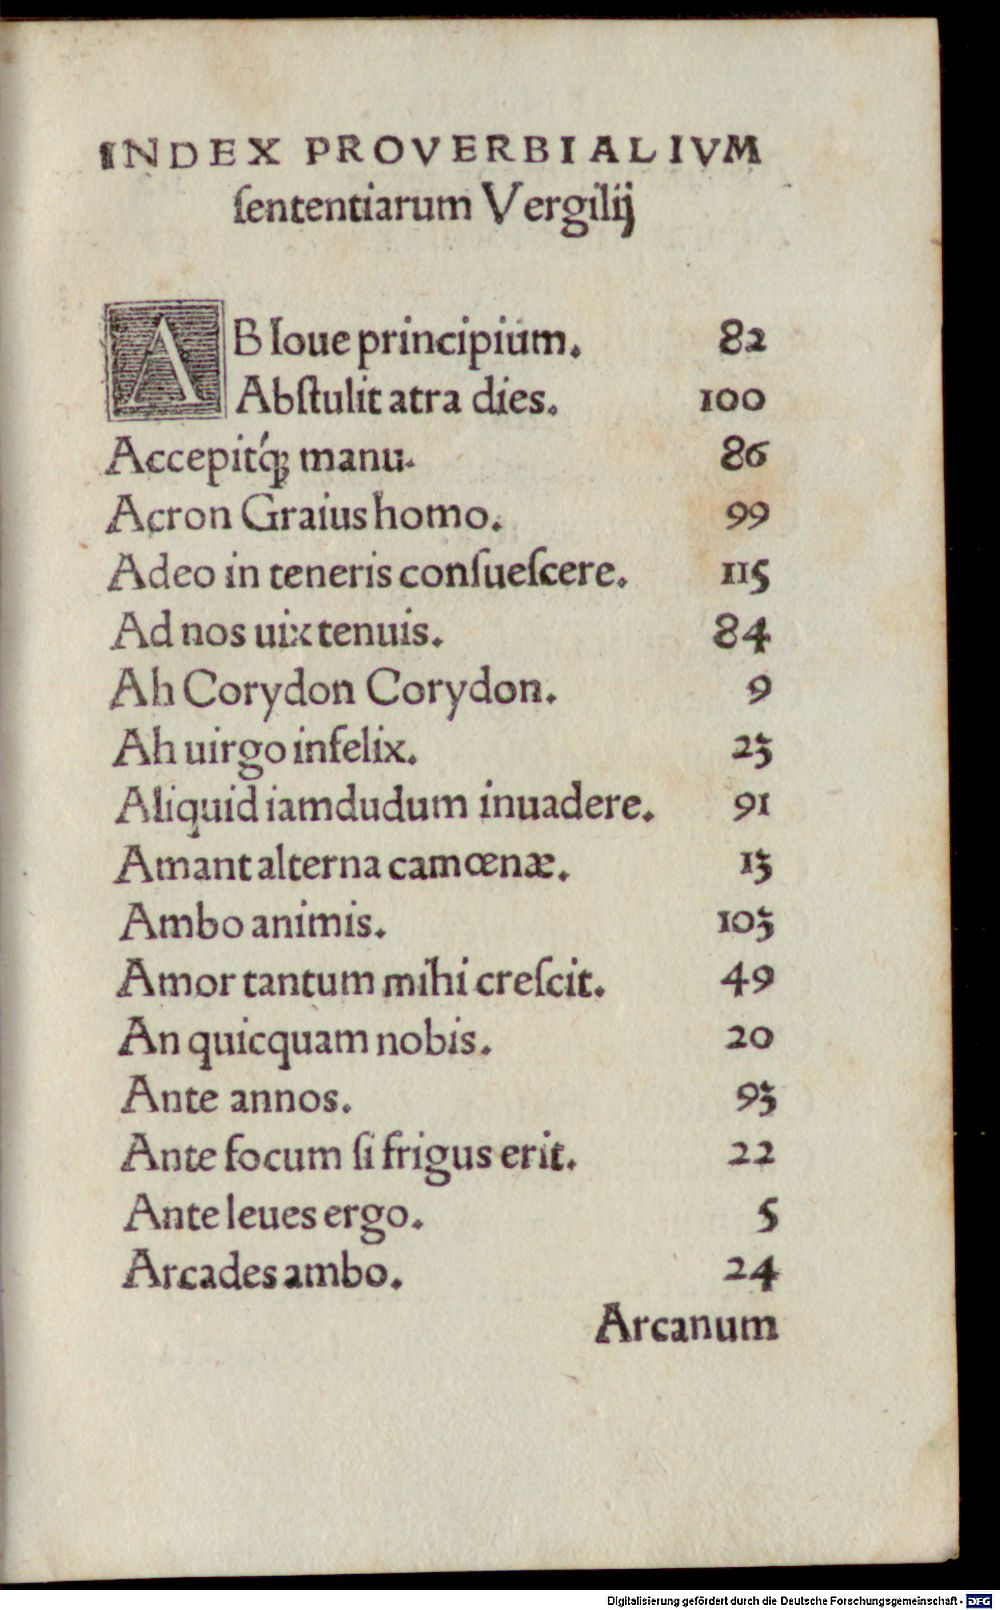 INDEX PROVERBIALIVM
ſententiarum Vergilij
AB Ioue principium. 82
Abſtulit atra dies. 100
Accepitq́; manu. 86
Acron Graius homo. 99
Adeo in teneris conſueſcere. 115
Ad nos uix tenuis. 84
Ah Corydon Corydon. 9
Ah uirgo infelix. 23
Aliquid iamdudum inuadere. 91
Amant alterna camœnæ. 13
Ambo animis. 103
Amor tantum mihi creſcit. 49
An quicquam nobis. 20
Ante annos. 93
Ante focum ſi frigus erit. 22
Ante leues ergo. 5
Arcades ambo. 24
Arcanum
Digitalisierung gefördert durch die Deutsche Forschungsgemeinschaft - DFG